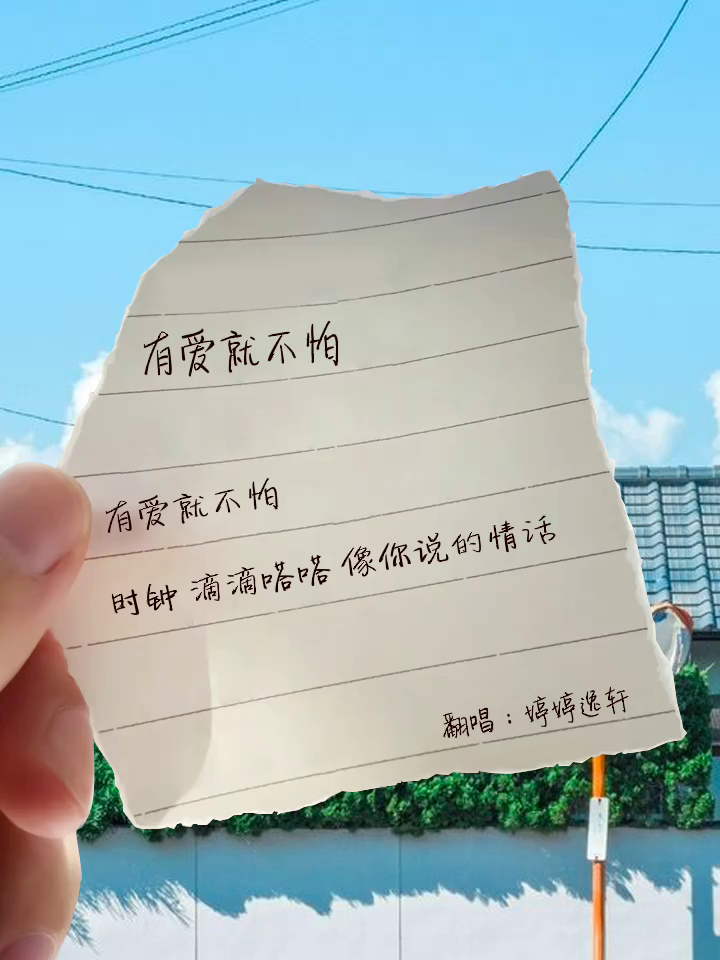 有爱就不怕
有爱就不怕
时钟 滴滴嗒嗒 像你说的情话
翻唱：婷婷逸轩